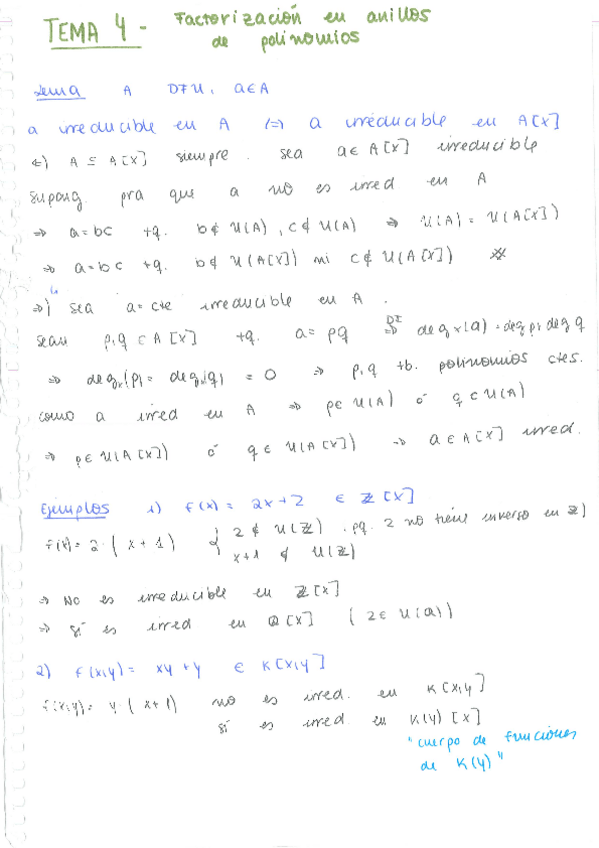 TEMA 4 - Factorización en anillos
de polinomios
Lema A DFU, a∈A
a irreducible en A ⟺ a irreducible en A[x]
⇐) A ⊆ A[x] siempre. sea a∈A[x] irreducible
Supong. pra que a no es irred en A
⇒ a=bc tq. b∉U(A), c∉U(A) ⇒ U(A) = U(A[x])
⇒ a=bc tq. b∉U(A[x]) ni c∉U(A[x]) ※
⇒) sea a=cte irreducible en A.
sean p,q ∈ A[x] tq. a=pq ⇒ DI deg_x(a) = deg p + deg q
⇒ deg_x(p) = deg_x(q) = 0 ⇒ p,q tb. polinomios ctes.
como a irred en A ⇒ p∈U(A) ó q∈U(A)
⇒ p∈U(A[x]) ó q∈U(A[x]) ⇒ a∈A[x] irred.
Ejemplos 1) f(x) = 2x+2 ∈ ℤ[x]
f(x) = 2·(x+1) { 2∉U(ℤ). pq. 2 no tiene inverso en ℤ)
x+1 ∉ U(ℤ)
⇒ No es irreducible en ℤ[x]
⇒ Sí es irred en ℚ[x] (2∈U(ℚ))
2) f(x,y) = xy+y ∈ K[x,y]
f(x,y) = y·(x+1) no es irred. en K[x,y]
sí es irred. en K(y)[x]
"cuerpo de funciones
de K(y)"